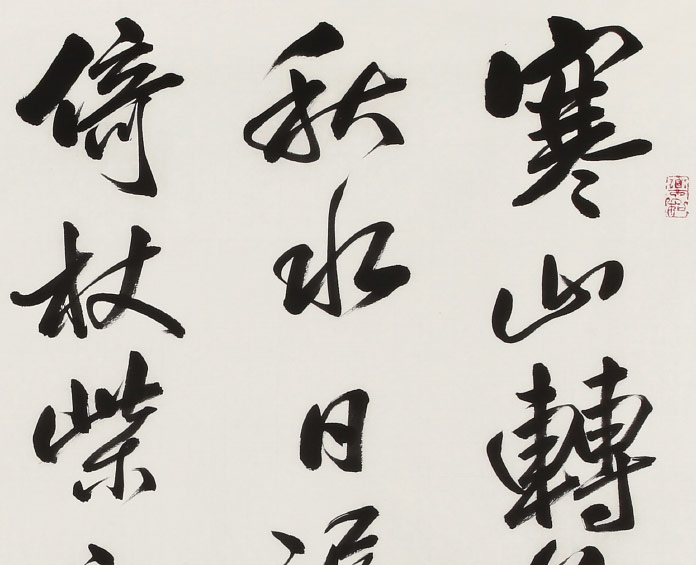 寒山轉
秋水日潺
倚杖柴